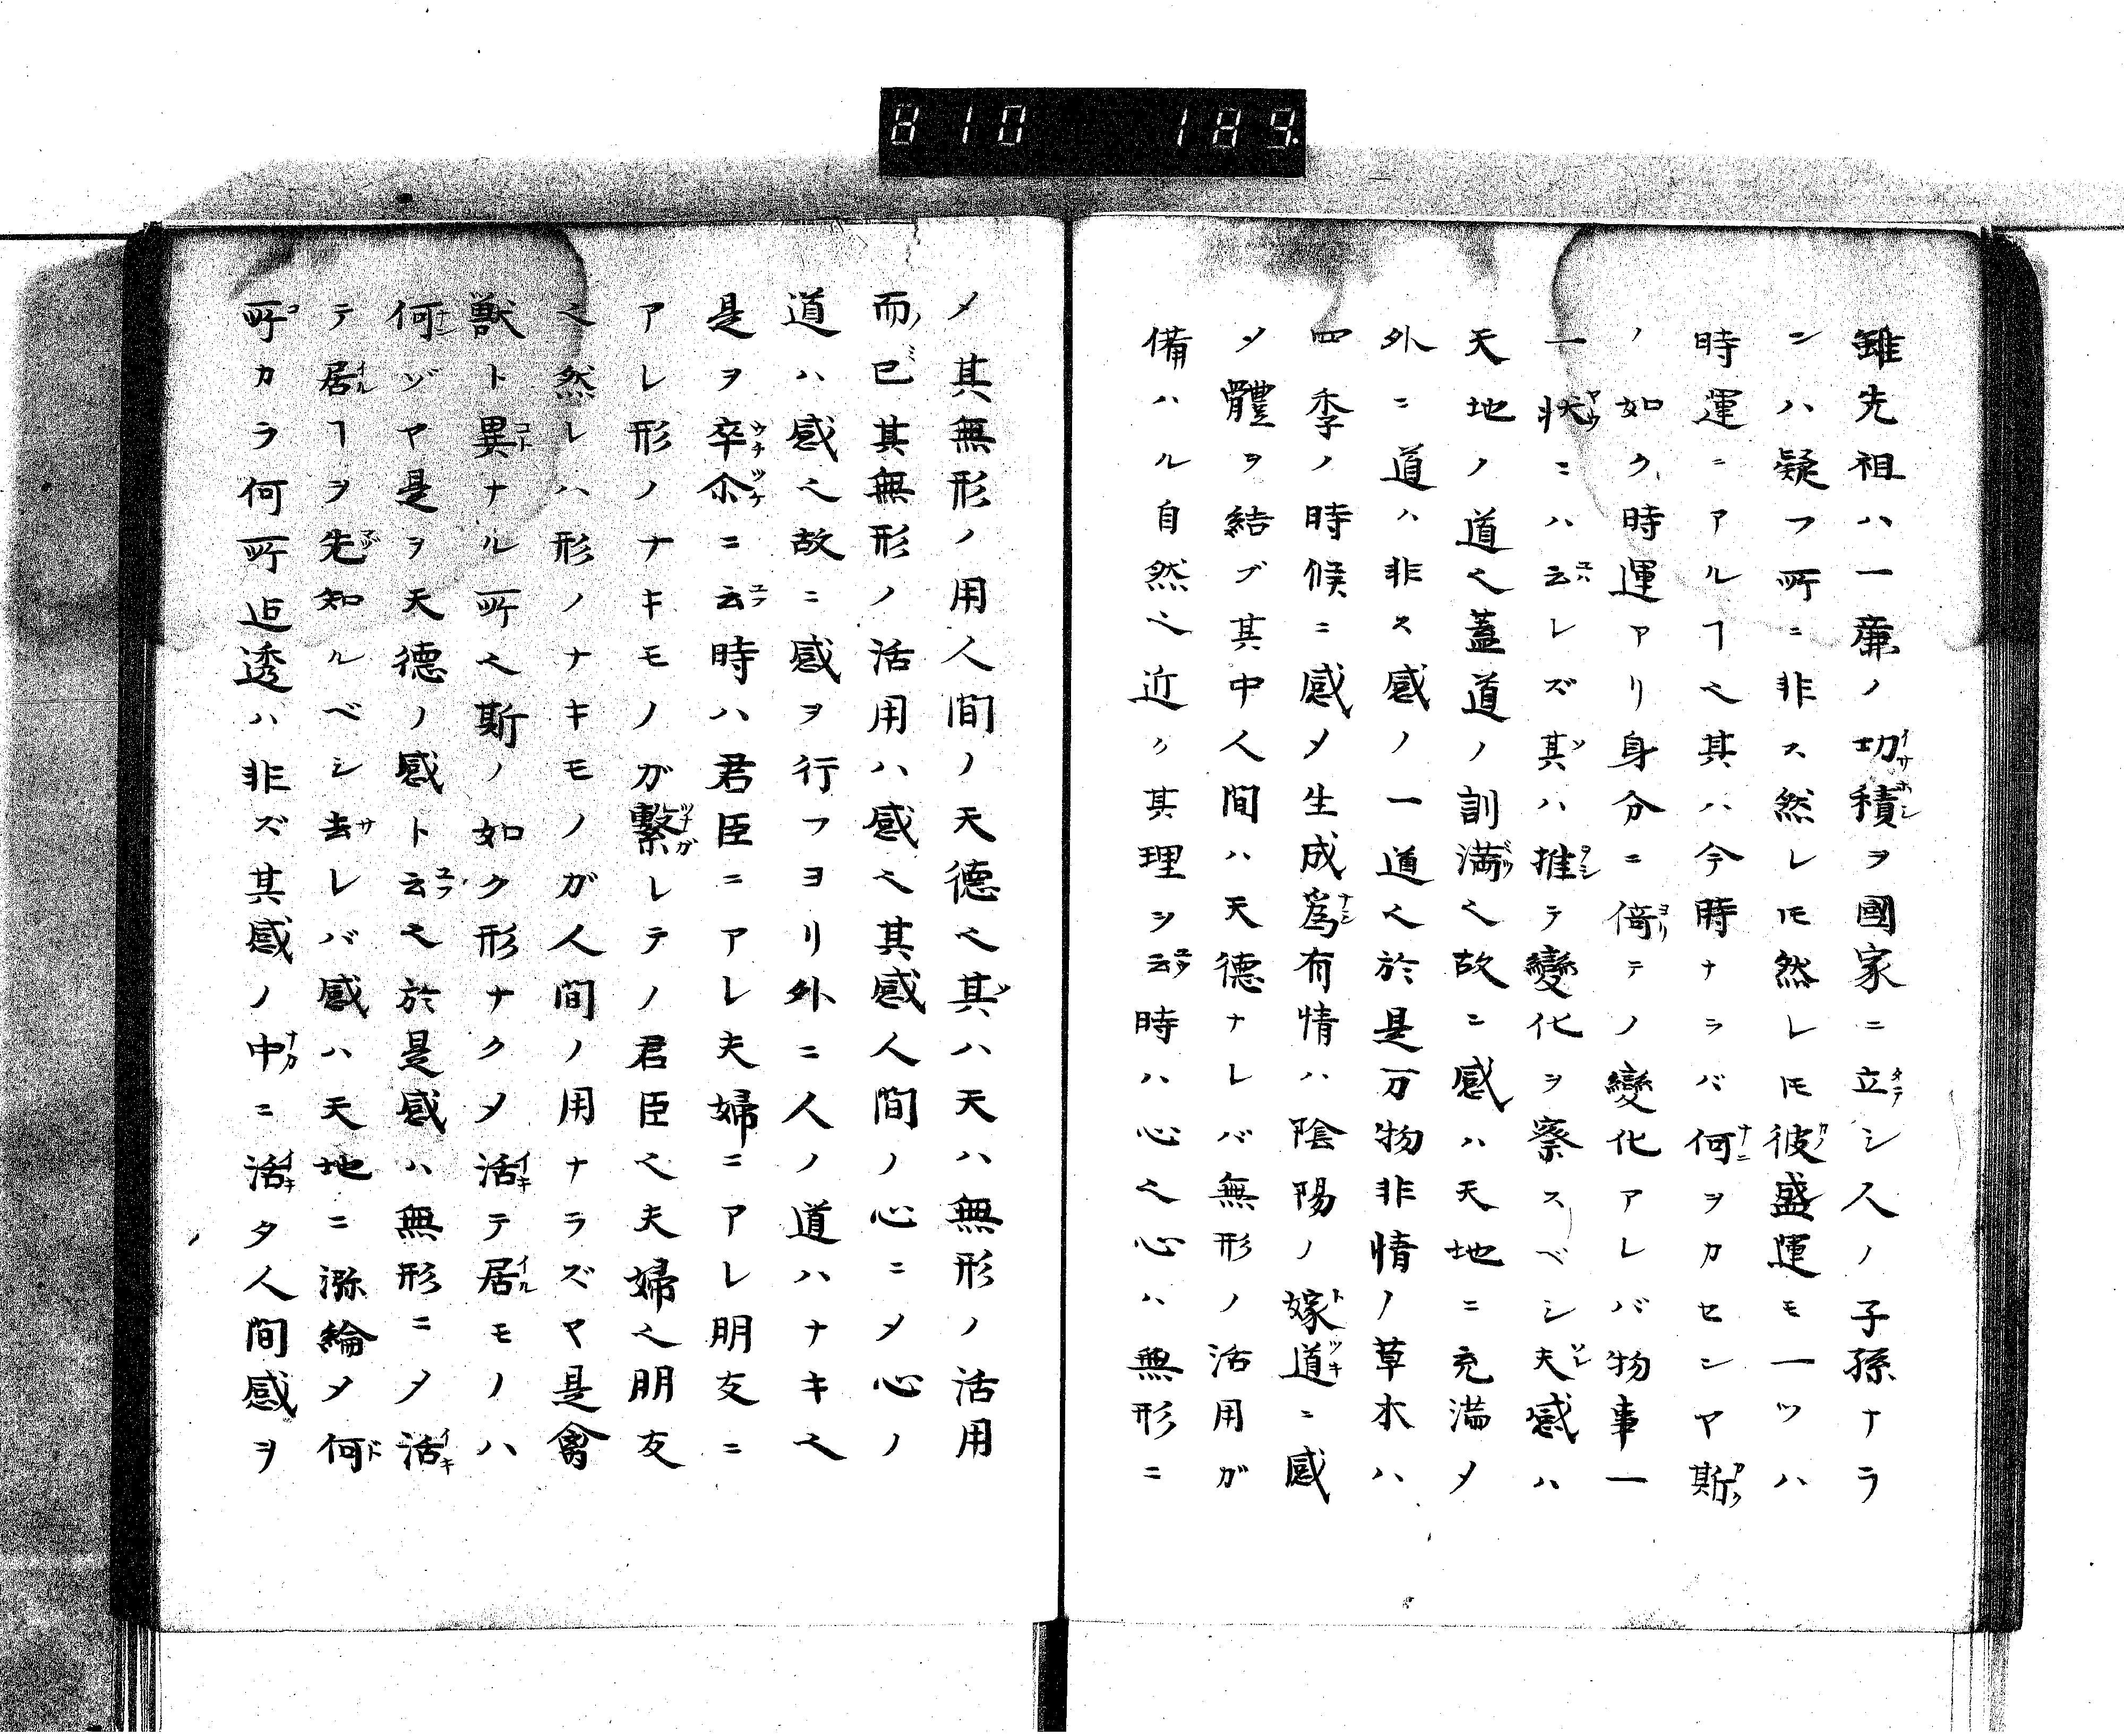 810 189.
雖先祖ハ一廉ノ切積ヲ國家ニ立シ人ノ子孫ナラ
ンハ疑フ所ニ非ス然レ𪜈然レ𪜈彼盛運モ一ツハ
時運ニアルヿ也其ハ今時ナラバ何ヲカセンヤ斯
ノ如ク時運アリ身分ニ倚テノ變化アレバ物事一
一状ニハ云レズ其ハ推テ變化ヲ察スベシ夫感ハ
天地ノ道也蓋道ノ訓満也故ニ感ハ天地ニ充満メ
外ニ道ハ非ス感ノ一道也於是万物非情ノ草木ハ
四季ノ時候ニ感メ生成爲有情ハ陰陽ノ嫁道ニ感
メ體ヲ結ブ其中人間ハ天德ナレバ無形ノ活用ガ
備ハル自然也近ク其理ヲ云時ハ心也心ハ無形ニ
ノ其無形ノ用人間ノ天德也其ハ天ハ無形ノ活用
而已其無形ノ活用ハ感也其感人間ノ心ニメ心ノ
道ハ感也故ニ感ヲ行フヨリ外ニ人ノ道ハナキ也
是ヲ卒尒ニ云時ハ君臣ニアレ夫婦ニアレ朋友ニ
アレ形ノナキモノガ繫レテノ君臣也夫婦也朋友
也然レハ形ノナキモノガ人間ノ用ナラズヤ是禽
獸ト異ナル所也斯ノ如ク形ナクメ活テ居モノハ
何ゾヤ是ヲ天德ノ感ト云也於是感ハ無形ニメ活
テ居ヿヲ先知ルベシ去レバ感ハ天地ニ滁綸メ何
所カラ何所迠透ハ非ズ其感ノ中ニ活タ人間感ヲ